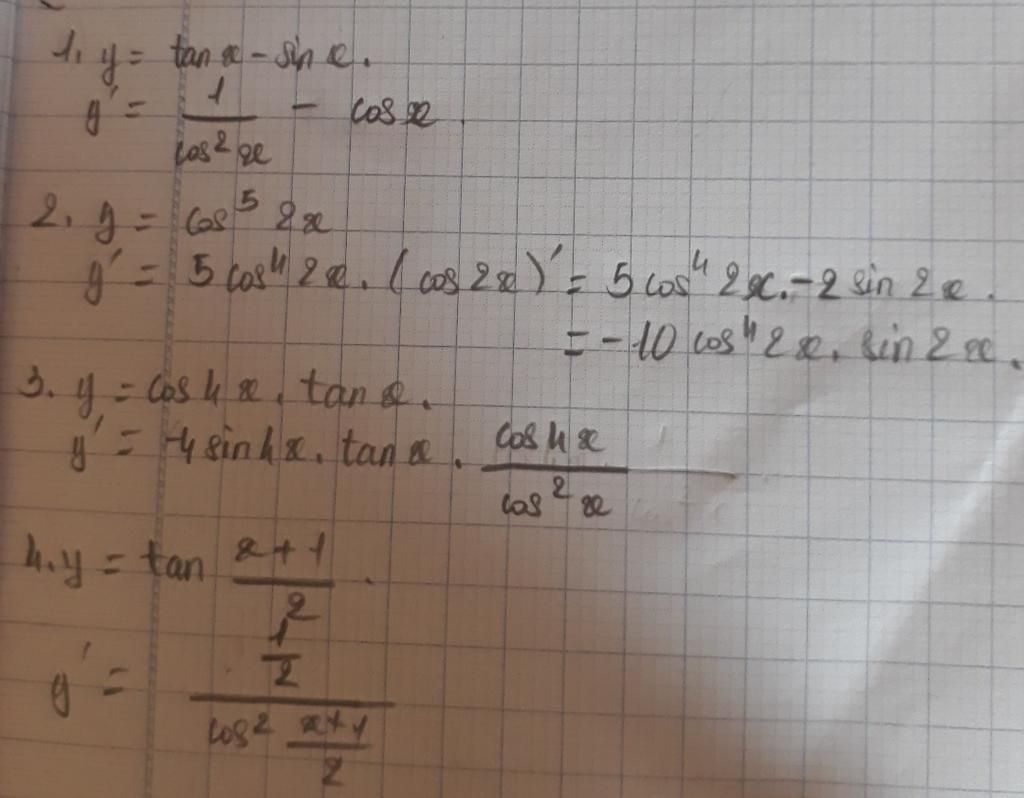 1. y = tan x - sin x.
y' = 1/cos² x - cos x.
2. y = cos⁵ 2x
y' = 5 cos⁴ 2x . (cos 2x)' = 5 cos⁴ 2x . -2 sin 2x.
= -10 cos⁴ 2x . sin 2x.
3. y = cos 4x . tan x.
y' = -4 sin 4x . tan x . cos 4x/cos² x
4. y = tan (x + 1)/2 .
y' = (1/2)/(cos² (x+1)/2)